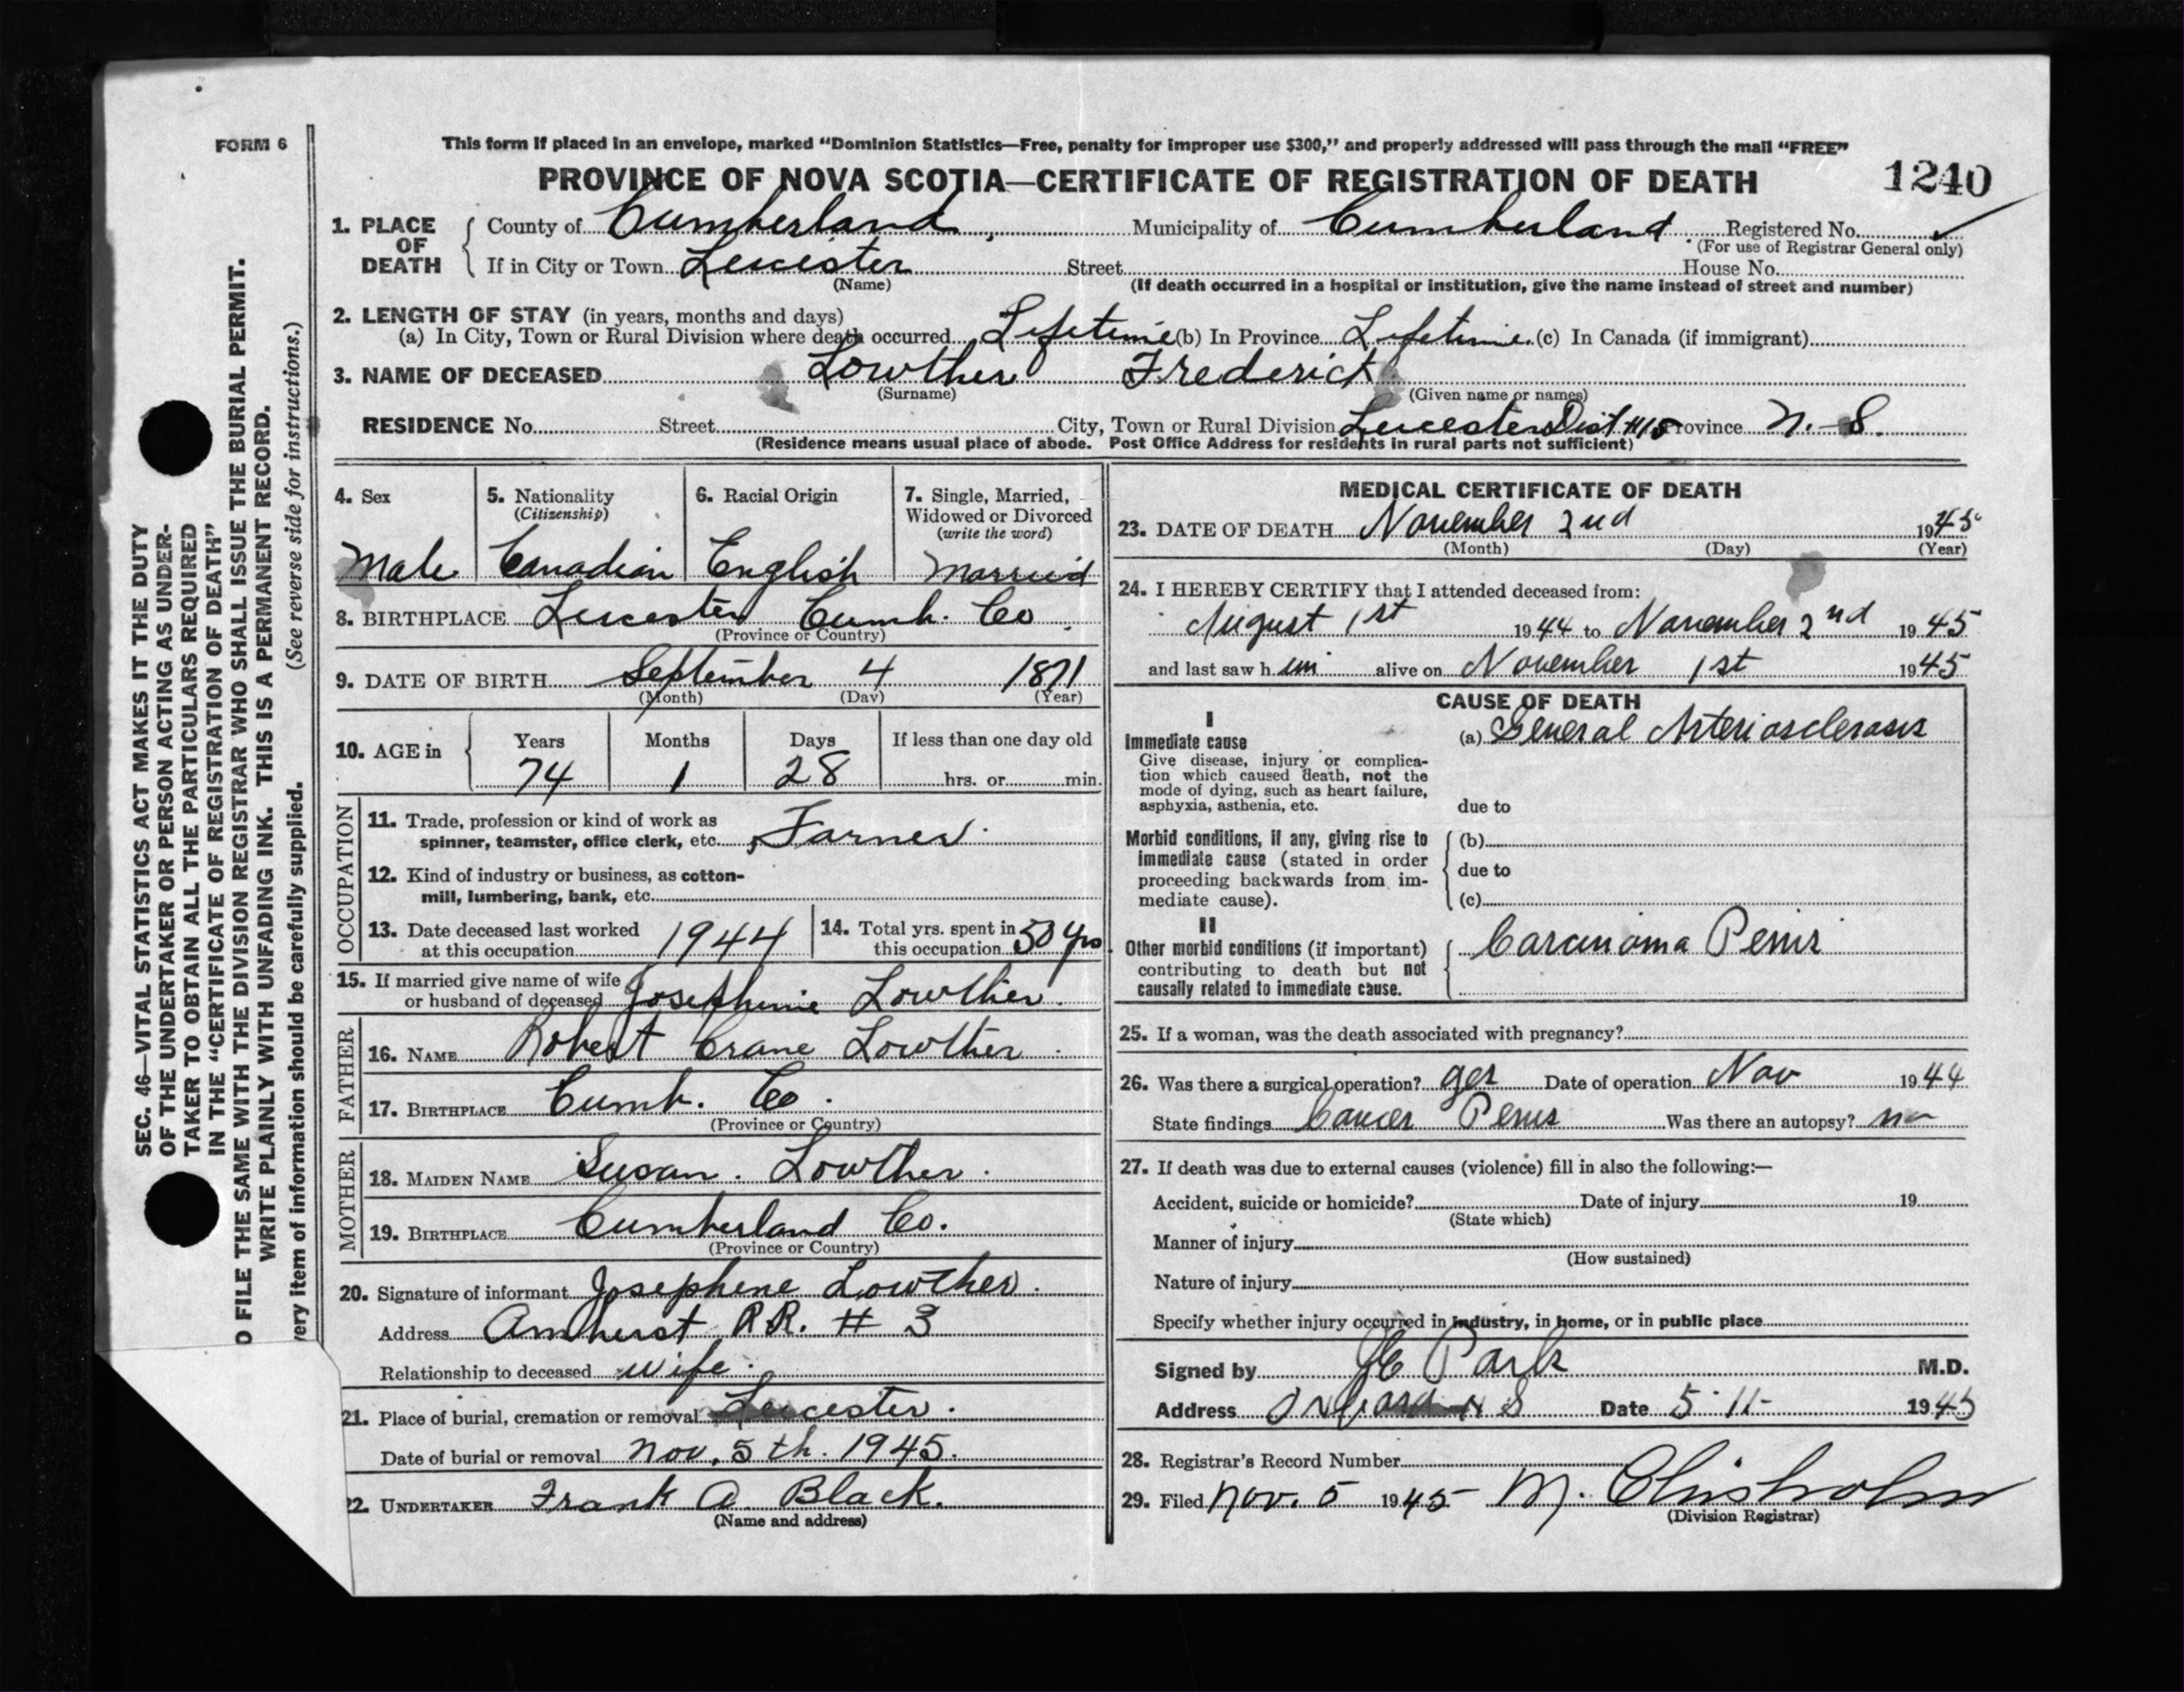 FORM 6
This form if placed in an envelope, marked "Dominion Statistics—Free, penalty for improper use $300," and properly addressed will pass through the mail "FREE"
PROVINCE OF NOVA SCOTIA—CERTIFICATE OF REGISTRATION OF DEATH 1240
1. PLACE OF DEATH County of Cumberland, Municipality of Cumberland. Registered No.
(For use of Registrar General only)
If in City or Town Leicester Street House No.
(Name) (If death occurred in a hospital or institution, give the name instead of street and number)
2. LENGTH OF STAY (in years, months and days)
(a) In City, Town or Rural Division where death occurred Lifetime (b) In Province Lifetime. (c) In Canada (if immigrant)
3. NAME OF DECEASED Lowther Frederick
(Surname) (Given name or names)
RESIDENCE No. Street City, Town or Rural Division Leicester Dist #15 Province N.-S.
(Residence means usual place of abode. Post Office Address for residents in rural parts not sufficient)
4. Sex 5. Nationality (Citizenship) 6. Racial Origin 7. Single, Married, Widowed or Divorced (write the word)
Male Canadian English Married
8. BIRTHPLACE Leicester Cumb. Co.
(Province or Country)
9. DATE OF BIRTH September 4 1871
(Month) (Day) (Year)
10. AGE in Years Months Days If less than one day old
74 1 28 hrs. or min.
OCCUPATION
11. Trade, profession or kind of work as
spinner, teamster, office clerk, etc. Farmer.
12. Kind of industry or business, as cotton-
mill, lumbering, bank, etc.
13. Date deceased last worked at this occupation 1944 14. Total yrs. spent in this occupation 50 yrs.
15. If married give name of wife
or husband of deceased Josephine Lowther.
FATHER
16. NAME Robert Crane Lowther.
17. BIRTHPLACE Cumb. Co.
(Province or Country)
MOTHER
18. MAIDEN NAME Susan. Lowther.
19. BIRTHPLACE Cumberland Co.
(Province or Country)
20. Signature of informant Josephene Lowther.
Address Amherst R.R. # 3
Relationship to deceased wife.
21. Place of burial, cremation or removal Leicester.
Date of burial or removal Nov. 5th. 1945.
22. UNDERTAKER Frank A. Black.
(Name and address)
MEDICAL CERTIFICATE OF DEATH
23. DATE OF DEATH November 2nd 1945
(Month) (Day) (Year)
24. I HEREBY CERTIFY that I attended deceased from:
August 1st 1944 to November 2nd 1945
and last saw him alive on November 1st 1945
CAUSE OF DEATH
I
Immediate cause (a) General Arteriosclerosis
Give disease, injury or complica-
tion which caused death, not the
mode of dying, such as heart failure,
asphyxia, asthenia, etc. due to
Morbid conditions, if any, giving rise to (b)
immediate cause (stated in order
proceeding backwards from im- due to
mediate cause). (c)
II
Other morbid conditions (if important) Carcinoma Penis
contributing to death but not
causally related to immediate cause.
25. If a woman, was the death associated with pregnancy?
26. Was there a surgical operation? yes Date of operation Nov 1944
State findings Cancer Penis Was there an autopsy? no
27. If death was due to external causes (violence) fill in also the following:—
Accident, suicide or homicide? Date of injury 19
(State which)
Manner of injury
(How sustained)
Nature of injury
Specify whether injury occurred in industry, in home, or in public place
Signed by Park M.D.
Address N S Date 5-11- 1945
28. Registrar's Record Number
29. Filed Nov. 5 1945 M. Chisholm
(Division Registrar)
SEC. 46—VITAL STATISTICS ACT MAKES IT THE DUTY
OF THE UNDERTAKER OR PERSON ACTING AS UNDER-
TAKER TO OBTAIN ALL THE PARTICULARS REQUIRED
IN THE "CERTIFICATE OF REGISTRATION OF DEATH"
FILE THE SAME WITH THE DIVISION REGISTRAR WHO SHALL ISSUE THE BURIAL PERMIT.
WRITE PLAINLY WITH UNFADING INK. THIS IS A PERMANENT RECORD.
very item of information should be carefully supplied. (See reverse side for instructions.)